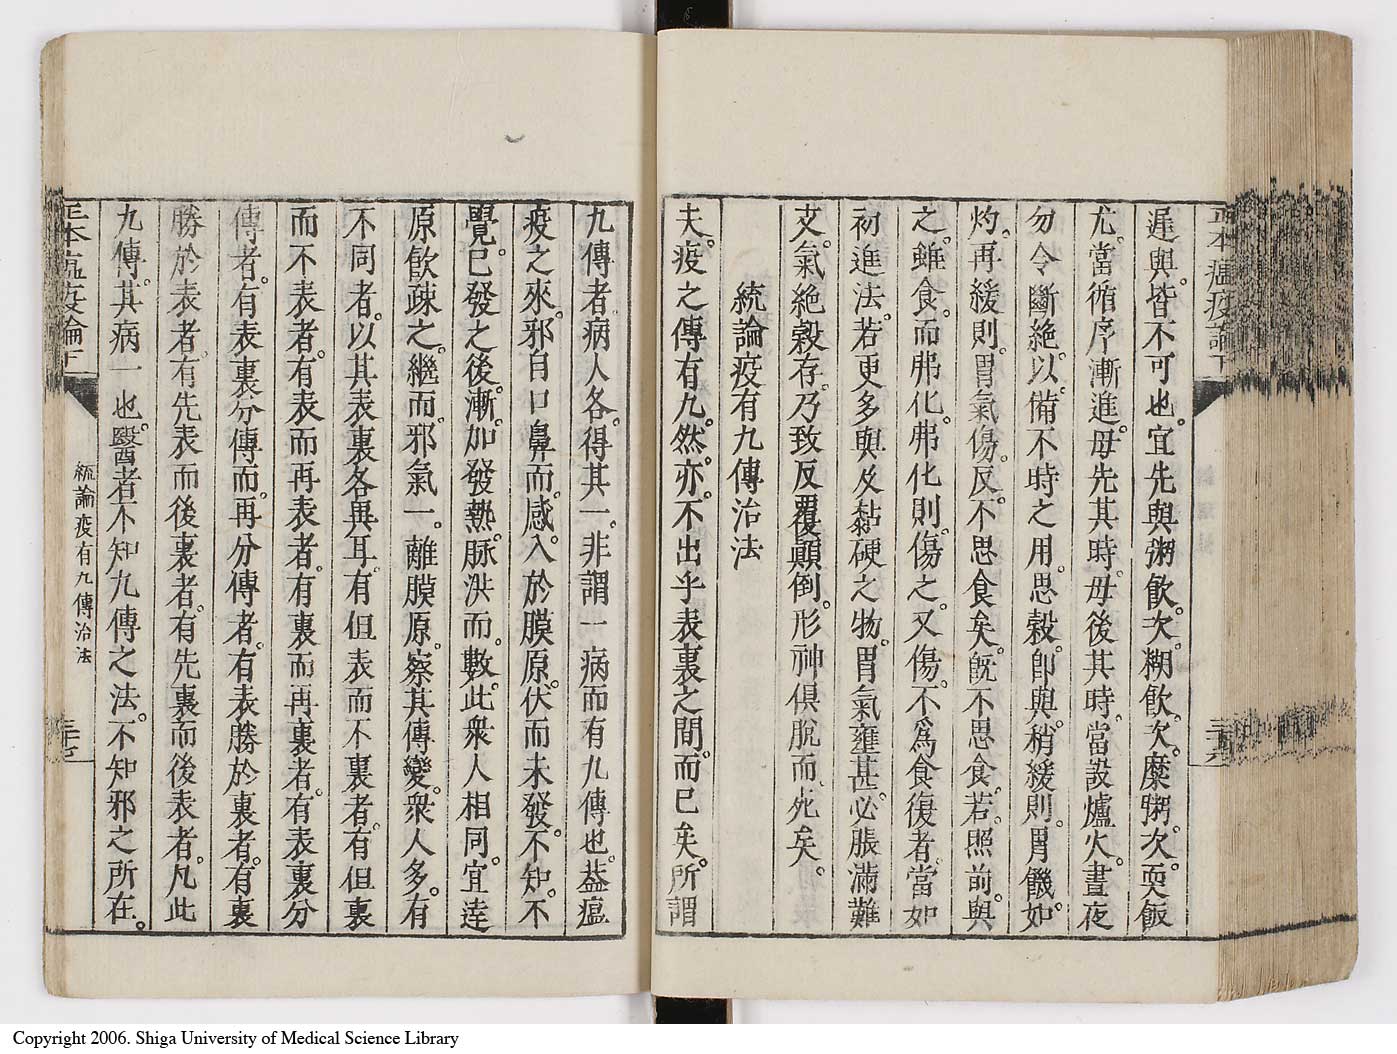 正本瘟疫論下
遲與。皆不可也。宜先與粥飲。次。糊飲。次。糜粥。次。耎飯
尤。當循序漸進。毋先其時。毋後其時。當設爐火。晝夜
勿令斷絕。以。備不時之用。思穀。卽與。稍緩則。胃饑如
灼。再緩則。胃氣傷。反。不思食矣。旣不思食。若。照前。與
之。雖食。而弗化。弗化則。傷之。又傷。不爲食復者。當如
初進法。若。更多與及黏硬之物。胃氣壅甚。必。脹滿難
支。氣絕穀存。乃致反覆顚倒。形神俱脫而、死矣。
統論疫有九傳治法
夫。疫之傳有九。然。亦。不出乎表裏之間。而已矣。所謂
三十六
九傳者。病人各。得其一。非謂一病而有九傳也。葢瘟
疫之來。邪自口鼻而。感。入於膜原。伏而未發。不知。不
覺。已發之後。漸。加發熱。脈洪而。數。此衆人相同。宜逹
原飮疎之。繼而。邪氣一。離膜原。察其傳變。衆人多。有
不同者。以其表裏各異耳。有但表而不裏者。有但裏
而不表者。有表而再表者。有裏而再裏者。有表裏分
傳者。有表裏分傳而。再分傳者。有表勝於裏者。有裏
勝於表者。有先表而後裏者。有先裏而後表者。凡此
九傳。其病一也。醫者不知九傳之法。不知邪之所在。
正本瘟疫論下
統論疫有九傳治法
三十七
Copyright 2006. Shiga University of Medical Science Library